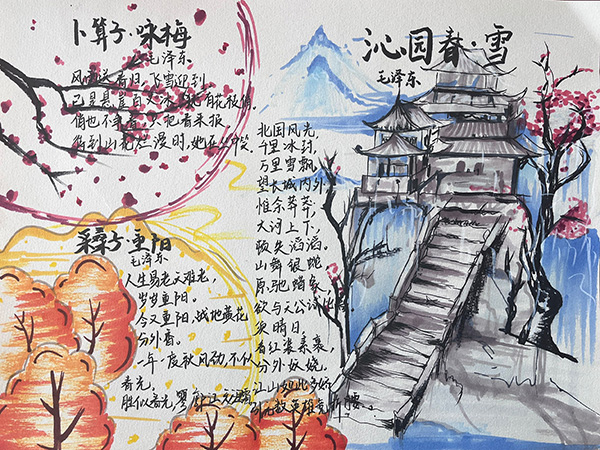 卜算子·咏梅
毛泽东
风雨送春归,飞雪迎到
已是悬崖百丈冰,犹有花枝俏。
俏也不争春,只把春来报
待到山花烂漫时,她在丛中笑
采桑子·重阳
毛泽东
人生易老天难老,
岁岁重阳。
今又重阳,战地黄花
分外香。
一年一度秋风劲,不似
春光。
胜似春光,寥廓江天万里霜
沁园春·雪
毛泽东
北国风光,
千里冰封,
万里雪飘,
望长城内外,
惟余莽莽,
大河上下,
顿失滔滔。
山舞银蛇
原驰蜡象
欲与天公试比
须晴日,
看红装素裹,
分外妖娆。
江山如此多娇
引无数英雄竞折腰。